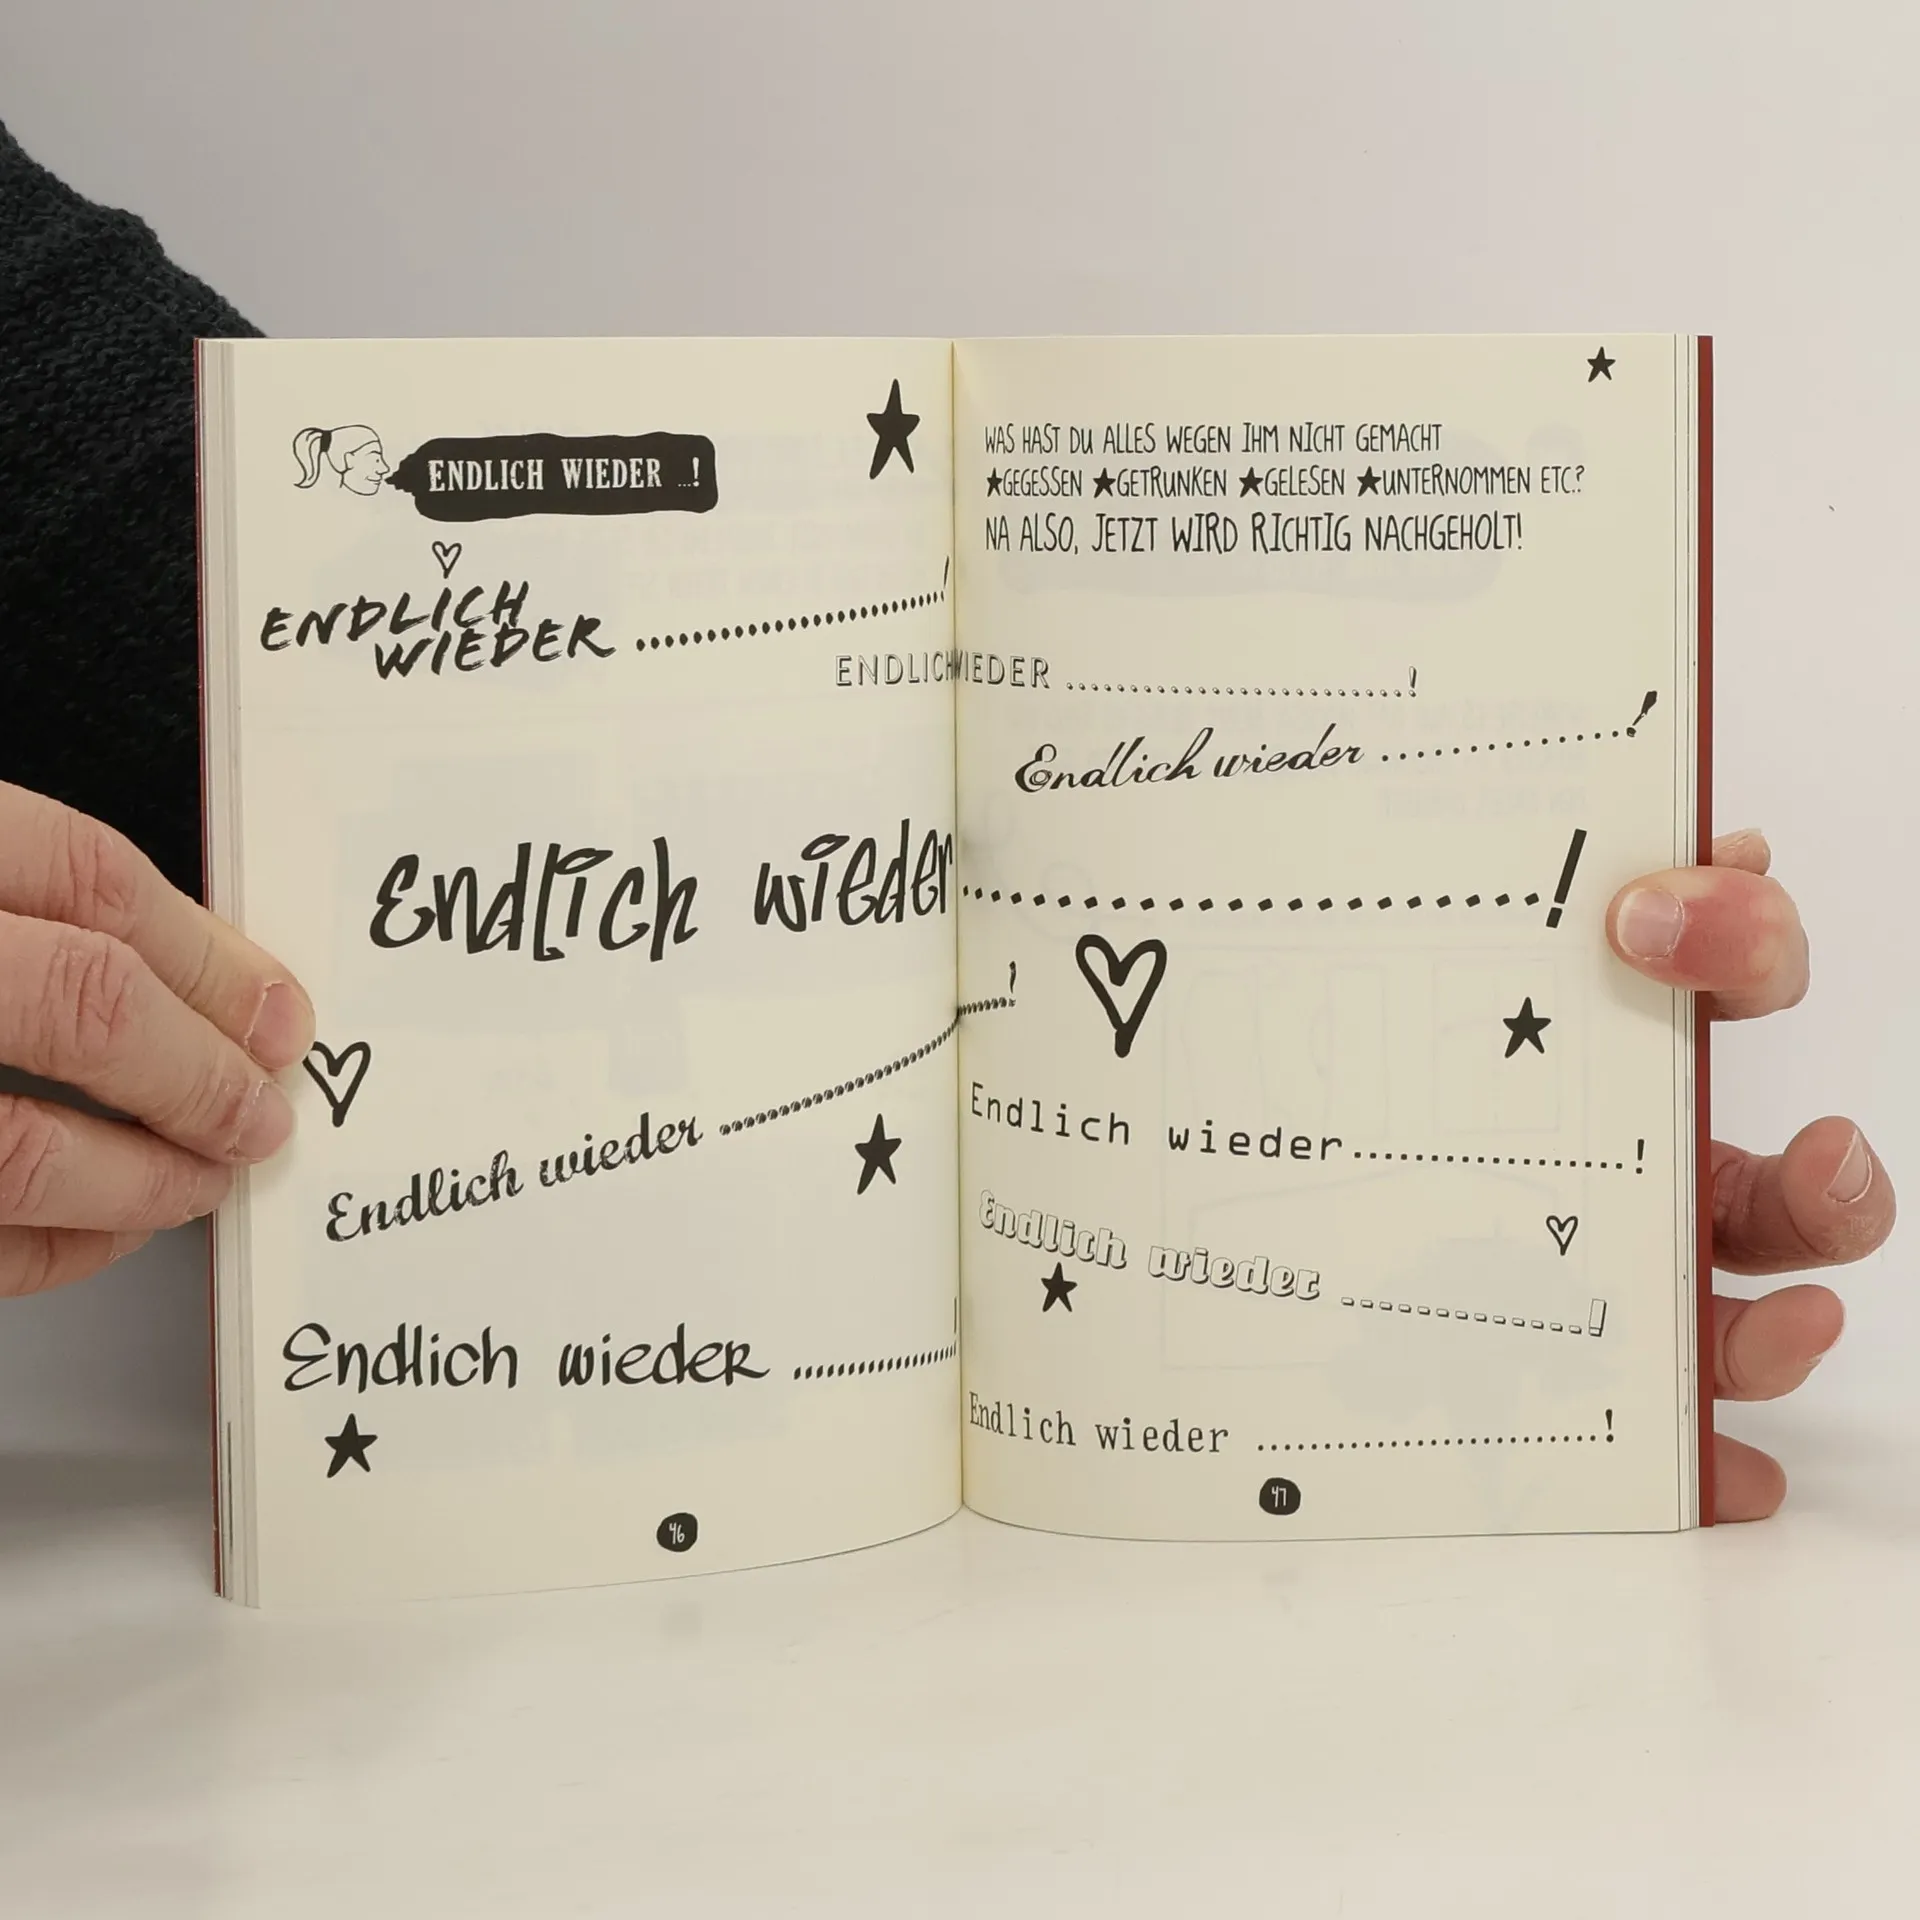 ENDLICH WIEDER ...!
ENDLICH
WIEDER ..............................!
WAS HAST DU ALLES WEGEN IHM NICHT GEMACHT
★GEGESSEN ★GETRUNKEN ★GELESEN ★UNTERNOMMEN ETC.?
NA ALSO, JETZT WIRD RICHTIG NACHGEHOLT!
ENDLICH WIEDER ..............................!
Endlich wieder ..................!
Endlich wieder ..........................!
Endlich wieder ..............................!
Endlich wieder ....................!
Endlich wieder....................!
Endlich wieder ...............!
Endlich wieder ..............................!
46
47